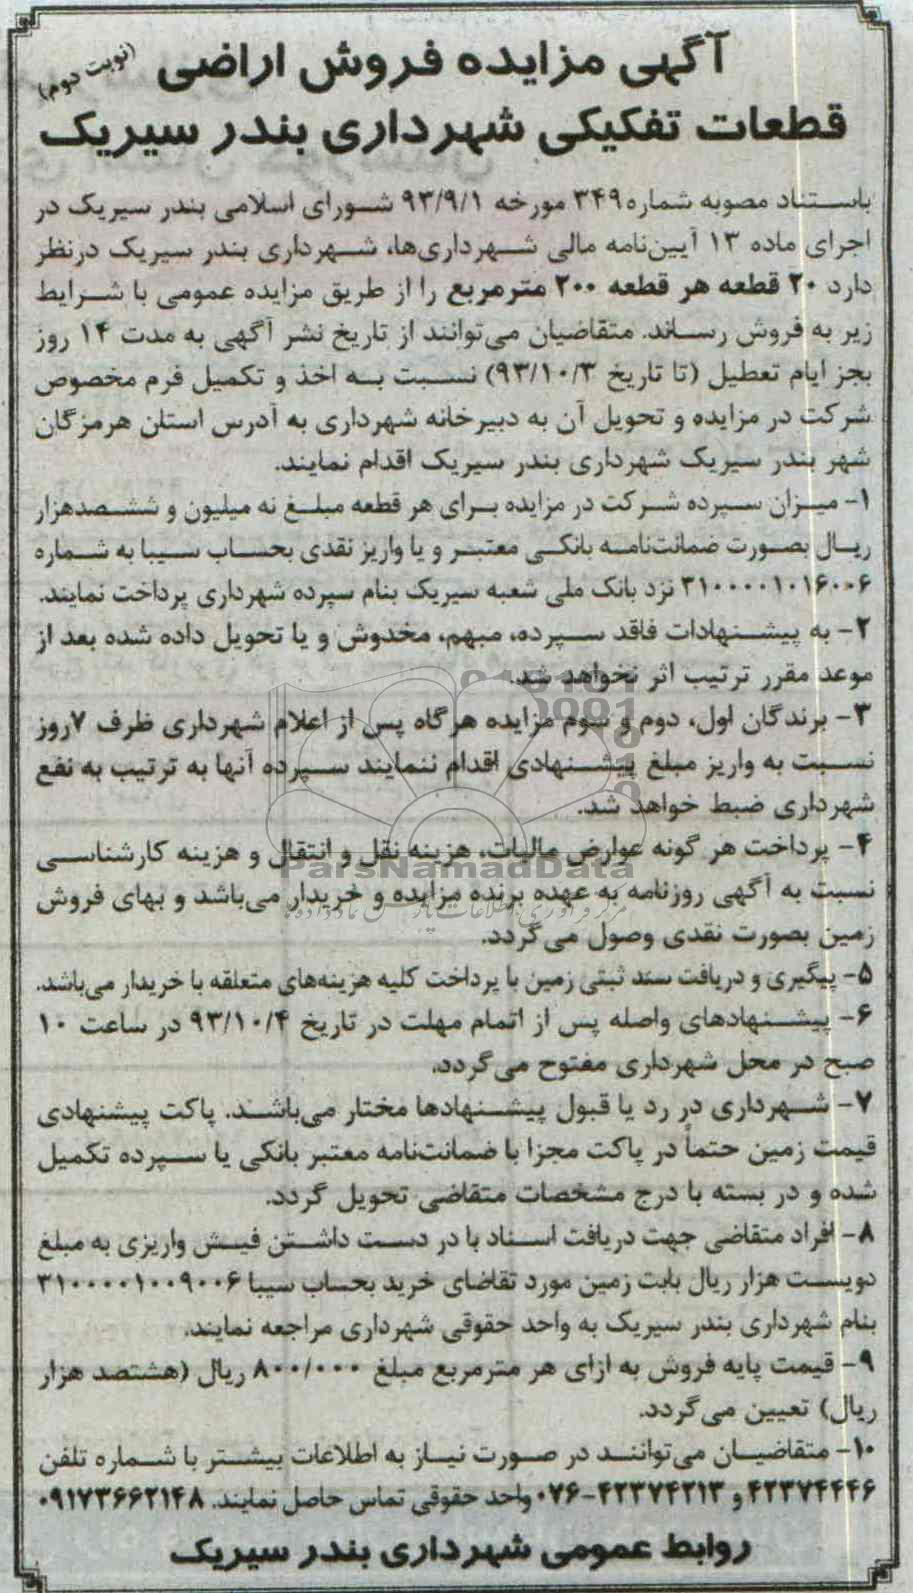 آگهی مزایده فروش اراضی (نوبت دوم)
قطعات تفکیکی شهرداری بندر سیریک
باستناد مصوبه شماره ۳۴۹ مورخه ۹۳/۹/۱ شورای اسلامی بندر سیریک در
اجرای ماده ۱۳ آیین‌نامه مالی شهرداری‌ها، شهرداری بندر سیریک درنظر
دارد ۲۰ قطعه هر قطعه ۲۰۰ مترمربع را از طریق مزایده عمومی با شرایط
زیر به فروش رساند. متقاضیان می‌توانند از تاریخ نشر آگهی به مدت ۱۴ روز
بجز ایام تعطیل (تا تاریخ ۹۳/۱۰/۳) نسبت به اخذ و تکمیل فرم مخصوص
شرکت در مزایده و تحویل آن به دبیرخانه شهرداری به آدرس استان هرمزگان
شهر بندر سیریک شهرداری بندر سیریک اقدام نمایند.
۱- میزان سپرده شرکت در مزایده برای هر قطعه مبلغ نه میلیون و ششصدهزار
ریال بصورت ضمانت‌نامه بانکی معتبر و یا واریز نقدی بحساب سیبا به شماره
۳۱۰۰۰۰۱۰۱۶۰۰۶ نزد بانک ملی شعبه سیریک بنام سپرده شهرداری پرداخت نمایند.
۲- به پیشنهادات فاقد سپرده، مبهم، مخدوش و یا تحویل داده شده بعد از
موعد مقرر ترتیب اثر نخواهد شد.
۳- برندگان اول، دوم و سوم مزایده هرگاه پس از اعلام شهرداری ظرف ۷روز
نسبت به واریز مبلغ پیشنهادی اقدام ننمایند سپرده آنها به ترتیب به نفع
شهرداری ضبط خواهد شد.
۴- پرداخت هر گونه عوارض مالیات، هزینه نقل و انتقال و هزینه کارشناسی
ParsNamadData
نسبت به آگهی روزنامه به عهده برنده مزایده و خریدار می‌باشد و بهای فروش
زمین بصورت نقدی وصول می‌گردد.
۵- پیگیری و دریافت سند ثبتی زمین با پرداخت کلیه هزینه‌های متعلقه با خریدار می‌باشد.
۶- پیشنهادهای واصله پس از اتمام مهلت در تاریخ ۹۳/۱۰/۴ در ساعت ۱۰
صبح در محل شهرداری مفتوح می‌گردد.
۷- شهرداری در رد یا قبول پیشنهادها مختار می‌باشند. پاکت پیشنهادی
قیمت زمین حتماً در پاکت مجزا با ضمانت‌نامه معتبر بانکی یا سپرده تکمیل
شده و در بسته با درج مشخصات متقاضی تحویل گردد.
۸- افراد متقاضی جهت دریافت اسناد با در دست داشتن فیش واریزی به مبلغ
دویست هزار ریال بابت زمین مورد تقاضای خرید بحساب سیبا ۳۱۰۰۰۰۱۰۰۹۰۰۶
بنام شهرداری بندر سیریک به واحد حقوقی شهرداری مراجعه نمایند.
۹- قیمت پایه فروش به ازای هر مترمربع مبلغ ۸۰۰/۰۰۰ ریال (هشتصد هزار
ریال) تعیین می‌گردد.
۱۰- متقاضیان می‌توانند در صورت نیاز به اطلاعات بیشتر با شماره تلفن
۴۲۳۷۴۴۴۶ و ۴۲۳۷۴۲۱۳-۰۷۶ واحد حقوقی تماس حاصل نمایند. ۰۹۱۷۳۶۶۲۱۴۸
روابط عمومی شهرداری بندر سیریک